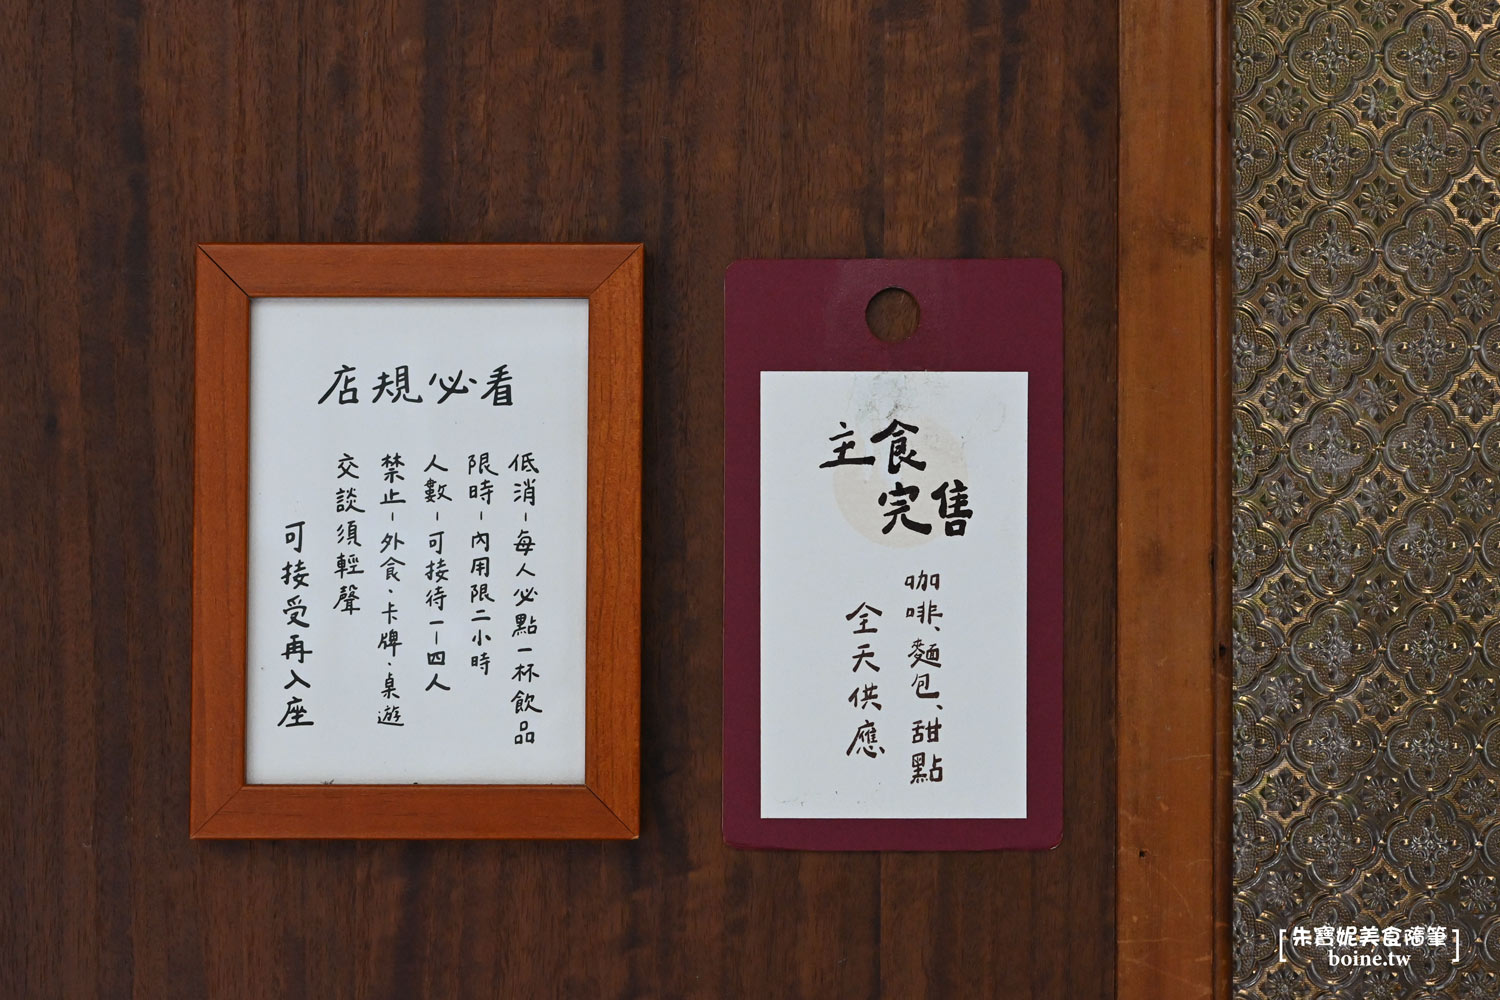 店規必看
低消-每人必點一杯飲品
限時-內用限二小時
人數-可接待一-四人
禁止-外食、卡牌、桌遊
交談須輕聲
可接受再入座
主食
完售
咖啡、麵包、甜點
全天供應
[朱寶妮美食隨筆]
boine.tw